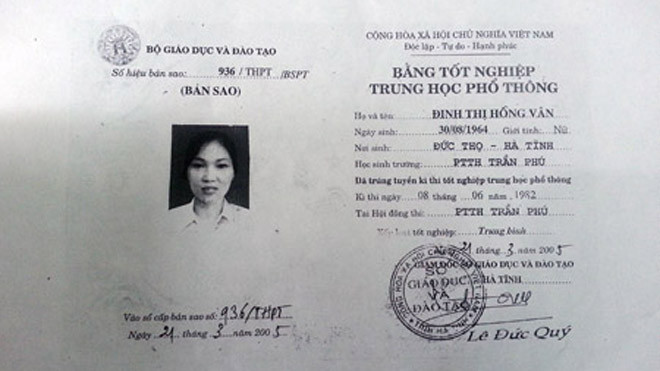 BỘ GIÁO DỤC VÀ ĐÀO TẠO
Số hiệu bản sao: 936/THPT /BSPT
(BẢN SAO)
Vào sổ cấp bản sao số: 936/THPT
Ngày 21 tháng 3 năm 2005
CỘNG HÒA XÃ HỘI CHỦ NGHĨA VIỆT NAM
Độc lập - Tự do - Hạnh phúc
BẰNG TỐT NGHIỆP
TRUNG HỌC PHỔ THÔNG
Họ và tên: ĐINH THỊ HỒNG VÂN
Ngày sinh: 30/08/1964 Giới tính: Nữ
Nơi sinh: ĐỨC THỌ - HÀ TĨNH
Học sinh trường: PTTH TRẦN PHÚ
Đã trúng tuyển kì thi tốt nghiệp trung học phổ thông
Kì thi ngày 08 tháng 06 năm 1982
Tại Hội đồng thi: PTTH TRẦN PHÚ
Xếp loại tốt nghiệp: Trung bình
21 tháng 3 năm 2005
GIÁM ĐỐC SỞ GIÁO DỤC VÀ ĐÀO TẠO
HÀ TĨNH
SỞ
GIÁO DỤC
VÀ
ĐÀO TẠO
Lê Đức Quý